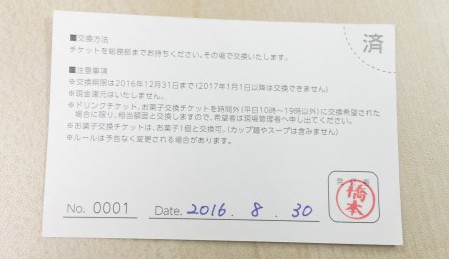 済
■交換方法
チケットを総務部までお持ちください。その場で交換いたします。
■注意事項
※交換期限は2016年12月31日まで(2017年1月1日以降は交換できません)
※現金還元はいたしません。
※ドリンクチケット、お菓子交換チケットを時間外(平日10時〜19時以外)に交換希望された
場合に限り、相当額面と交換しますので、希望者は現場管理者へ申し出てください。
※お菓子交換チケットは、お菓子1個と交換可。(カップ麺やスープは含みません)
※ルールは予告なく変更される場合があります。
橋本
No. 0001 Date. 2016. 8. 30